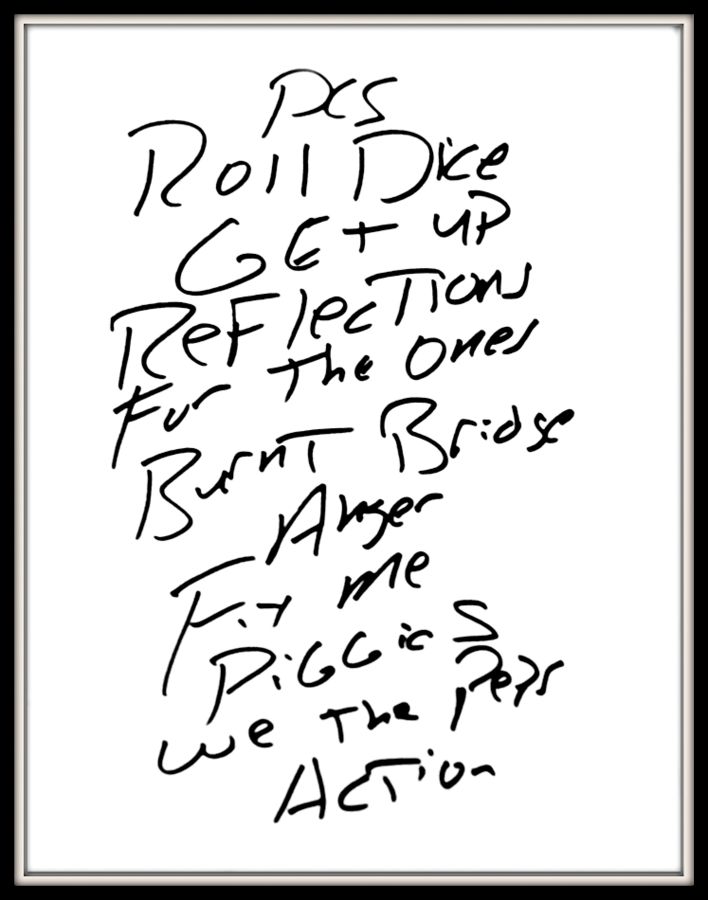 PCS
Roll Dice
GEt up
ReFlecTions
For The Ones
BurnT Bridge
Anger
Fix me
PiGGieS
we The Peps
AcTion